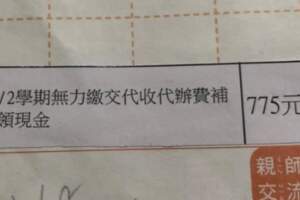 /2學期無力繳交代收代辦費補
領現金
775元
親師
交流